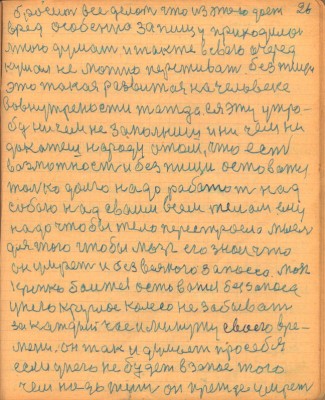 26
бросит все делат что из этого дает
вред особенно за пищу приходилос
много думат и также в свою очеред
кушат не можно переживат. без пищи
это такая развитая на человеке
во внутрености жажда. ея эту утро-
бу ничем не заполниш и ни чем ни
докажеш народу о том, что ест
возможност и без пищи остоватся
только долго надо работат над
собою над своим всем телом ему
надо чтобы тело перестроело
для того чтобы мозг его знал что
он умрет и без всякого запасса.
крепко боится остоватся без запоса
у него круглое колесо не забыват
за каждый час и минуту своего вре-
мени. он так и думает про себя
если у него не будет в запосе того
чем надо жит он прежде умрет